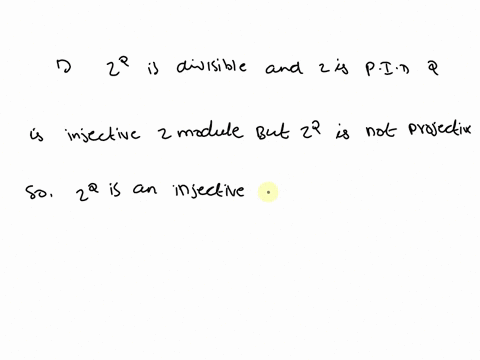 1) zQ is divisible and z is P.I.D Q
is injective z module But zQ is not projectiv
So, zQ is an injective